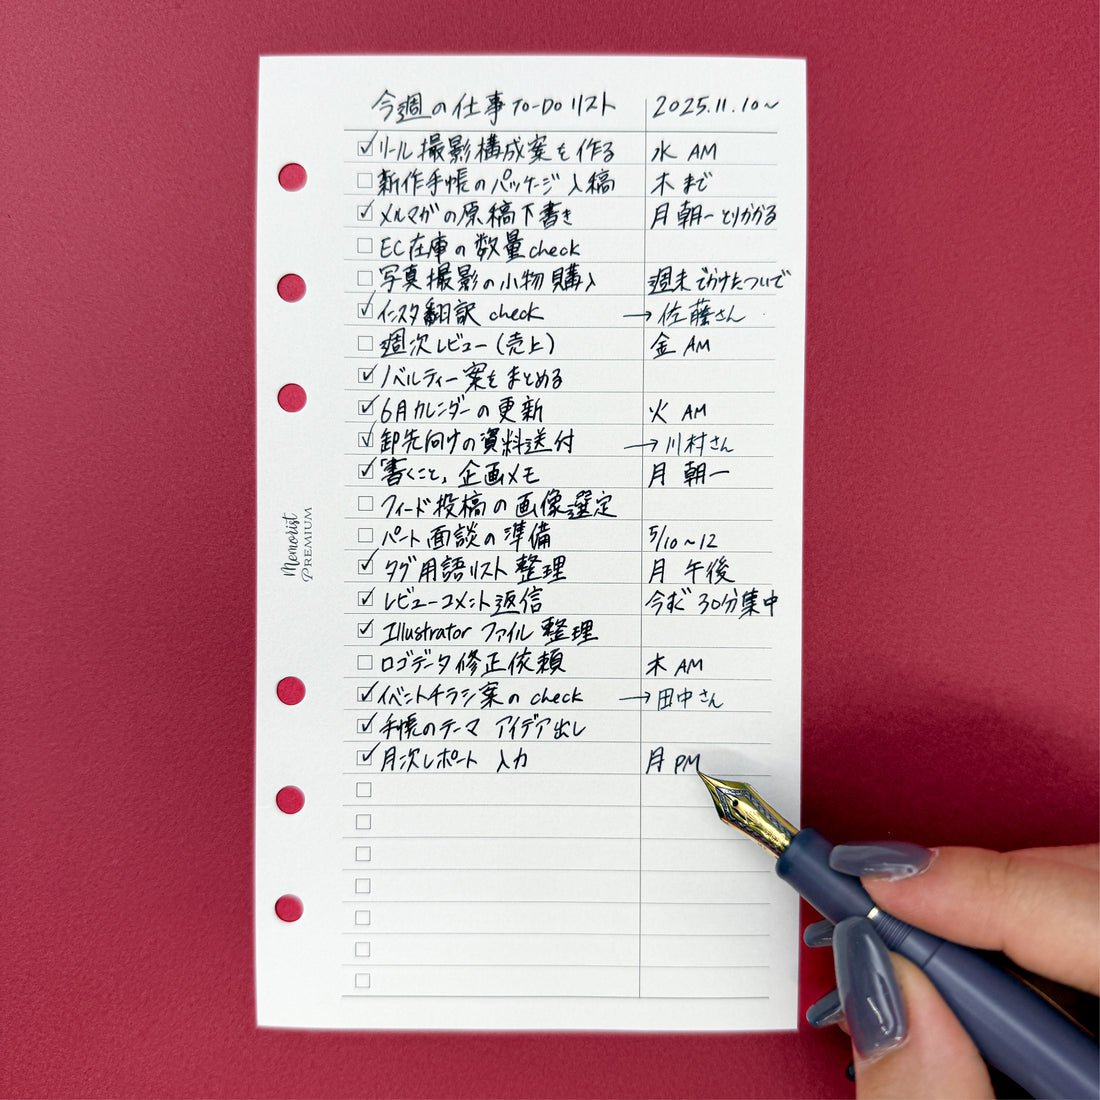 今週の仕事 To-Do リスト 2025.11.10~
リール撮影構成案を作る 水 AM
新作手帳のパッケージ入稿 木まで
メルマガの原稿下書き 月 朝一とりかかる
EC在庫の数量check
写真撮影の小物購入 週末でかけたついで
インスタ翻訳 check → 佐藤さん
週次レビュー(売上) 金 AM
ノベルティー案をまとめる
6月カレンダーの更新 火 AM
卸先向けの資料送付 → 川村さん
「書くこと」企画メモ 月 朝一
フィード投稿の画像選定
パート面談の準備 5/10~12
タグ用語リスト整理 月 午後
レビューコメント返信 今すぐ 30分集中
Illustrator ファイル整理
ロゴデータ修正依頼 木 AM
イベントチラシ案の check → 田中さん
手帳のテーマ アイデア出し
月次レポート 入力 月 PM
Memorist
PREMIUM